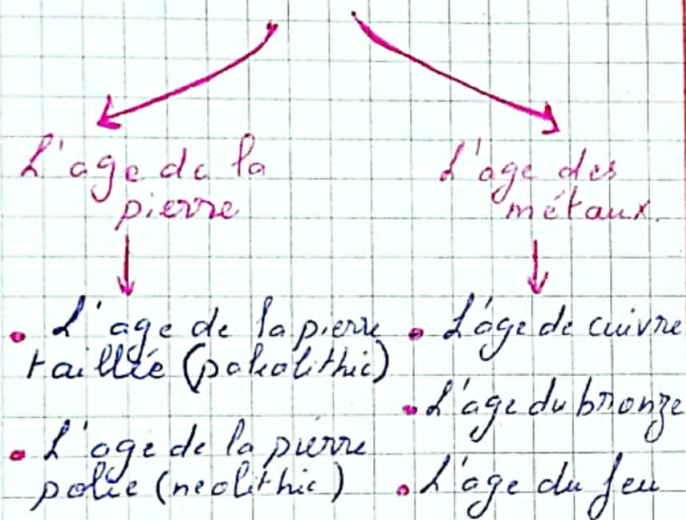 L'age de la
pierre
L'age des
métaux.
• L'age de la pierre
taillée (paleolithic)
• L'age de la pierre
polie (neolithic)
• L'age de cuivre
• L'age du bronze
• L'age du feu